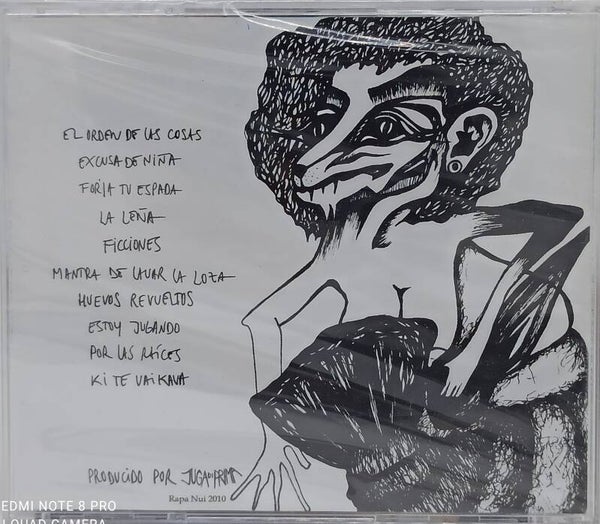 EL ORDEN DE LAS COSAS
EXCUSA DE NIÑA
FORJA TU ESPADA
LA LEÑA
FICCIONES
MANTRA DE LAVAR LA LOZA
HUEVOS REVUELTOS
ESTOY JUGANDO
POR LAS RAÍCES
KI TE VAIKAVA
PRODUCIDO POR
Rapa Nui 2010
EDMI NOTE 8 PRO
QUAD CAMERA